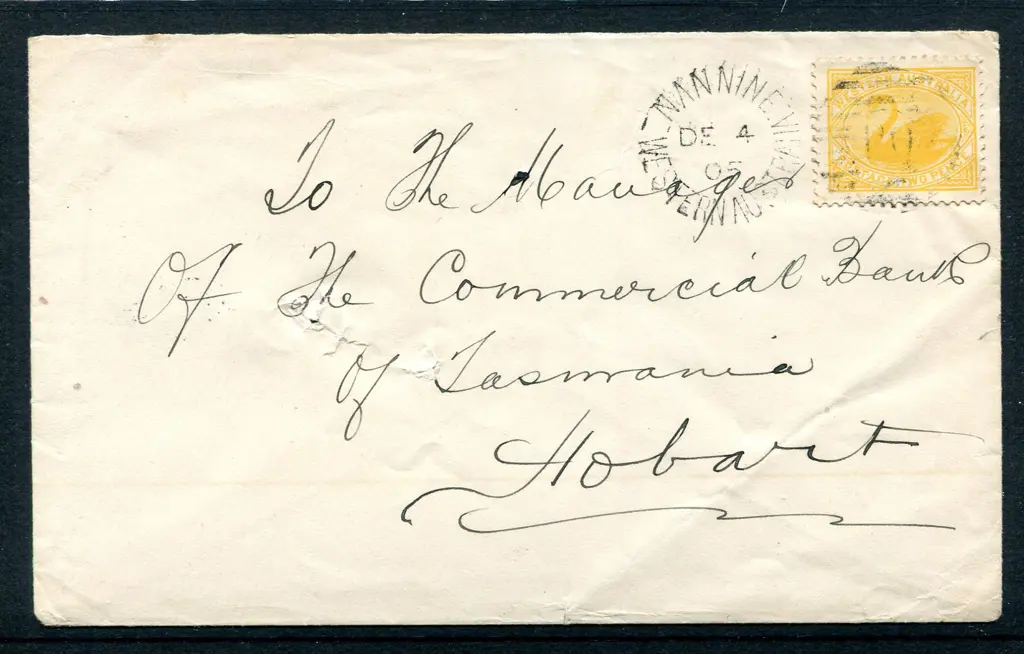 NANNINE.VI
WESTERN AUSTRALIA
DE 4
05
WESTERN AUSTRALIA
POSTAGE TWO PENCE
To The Manager
Of The Commercial Bank
of Tasmania
Hobart